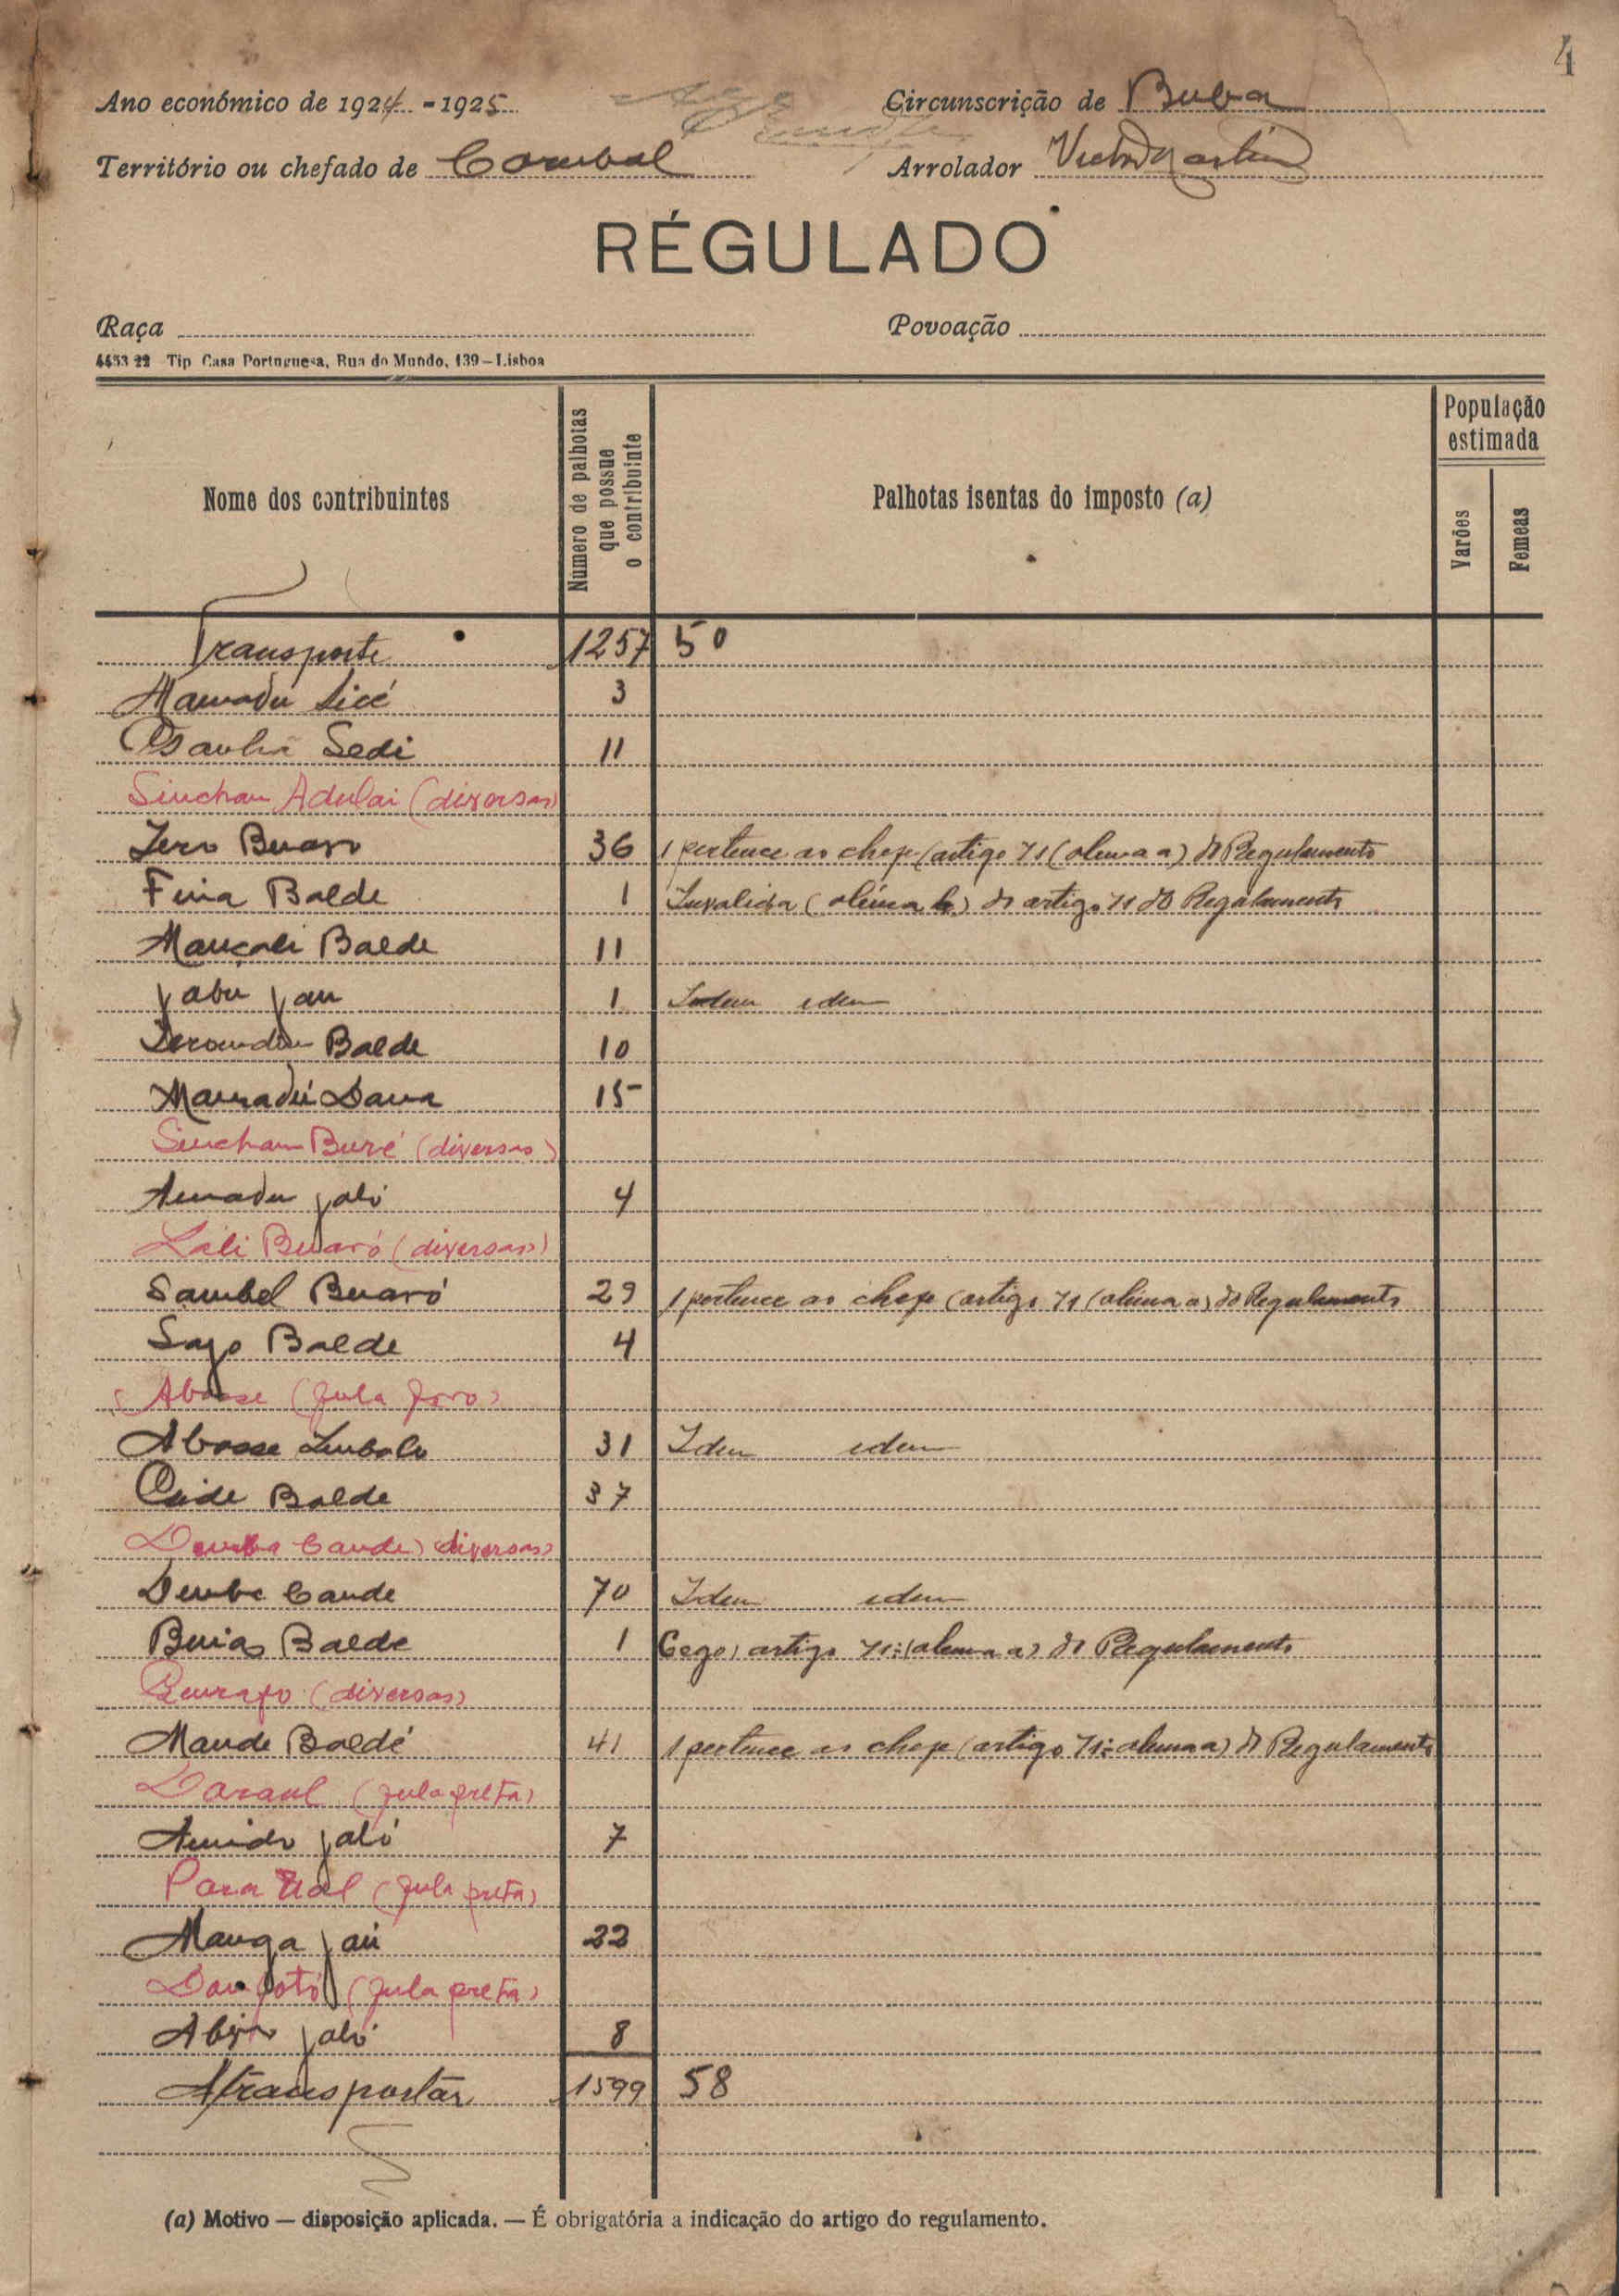 4
Ano económico de 1924 - 1925
Circunscrição de Buba
Território ou chefado de Corubal
Arrolador Victor Martins
RÉGULADO
Raça
Povoação
4453 22 Tip Casa Portuguesa, Rua do Mundo, 139 – Lisboa
Nome dos contribuintes
Numero de palhotas que possue o contribuinte
Palhotas isentas do imposto (a)
População estimada
Varões
Femeas
Transporte 1257 50
Mamadú Sicé 3
Sedi 11
Sinchan Adulai (diversas)
Jero Buaro 36 1 pertence ao chefe (artigo 71 (alinea a) do Regulamento
Balde 1 Invalida (alinea b) do artigo 71 do Regulamento
Mançali Balde 11
Jabu Jau 1 Idem idem
Balde 10
Mamadú Dama 15
Sinchan Buré (diversas)
Amadu Jaló 4
Lali Buaró (diversas)
Sambel Buaró 29 1 pertence ao chefe (artigo 71 (alinea a) do Regulamento
Balde 4
Abosse (fula foro)
Abosse Embalo 31 Idem idem
Balde 37
Demba Cande) diversas)
Demba Cande 70 Idem idem
Balde 1 Cego) artigo 71: (alinea a) do Regulamento
(diversas)
Mande Baldé 41 1 pertence ao chefe (artigo 71: alinea a) do Regulamento
Daraul (fula preta)
Amido Jaló 7
Para Ual (fula preta)
Manga Jaú 22
(fula preta)
Jaló 8
A transportar 1599 58
(a) Motivo — disposição aplicada. — É obrigatória a indicação do artigo do regulamento.